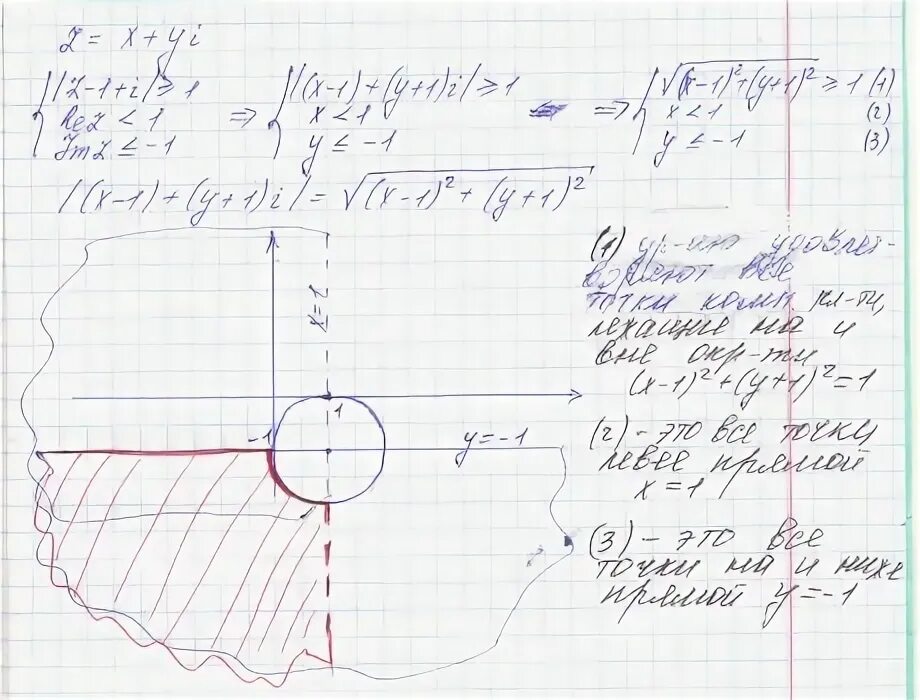 z = x + yi
|z-1+i| ≥ 1 ⇒ |(x-1)+(y+1)i| ≥ 1 ⇒ √(x-1)²+(y+1)² ≥ 1 (1)
Re z < 1 x < 1 x < 1 (2)
Im z ≤ -1 y ≤ -1 y ≤ -1 (3)
|(x-1)+(y+1)i| = √(x-1)²+(y+1)²
(1) ур-ию удовлет-
воряют все
точки комп пл-ти,
лежащие на и
вне окр-ти
(x-1)²+(y+1)²=1
(2) - это все точки
левее прямой
x = 1
(3) - это все
точки на и ниже
прямой y = -1
x=1
1
-1
y=-1